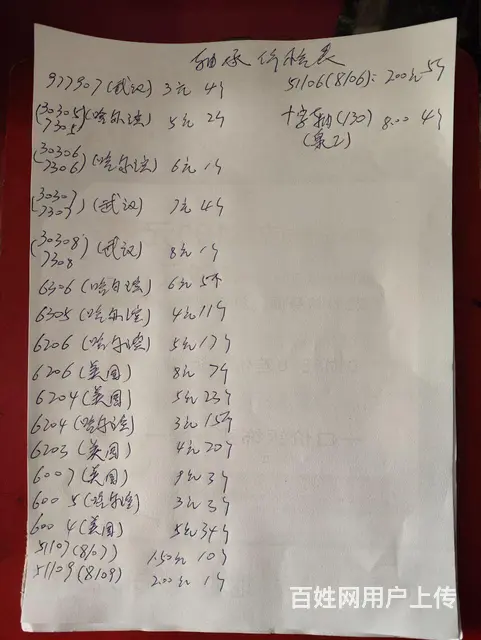 轴承价格表
977907(武汉) 3元 4个
(30305/7305)(哈尔滨) 5元 2个
(30306/7306)(哈尔滨) 6元 1个
(30307/7307)(武汉) 7元 4个
(30308/7308)(武汉) 8元 1个
6306(哈尔滨) 6元 5个
6305(哈尔滨) 4元 11个
6206(哈尔滨) 5元 17个
6206(美国) 8元 7个
6204(美国) 5元 23个
6204(哈尔滨) 3元 15个
6203(美国) 4元 20个
6007(美国) 9元 3个
6005(哈尔滨) 3元 3个
6004(美国) 5元 34个
51107(8107) 1.50元 10个
51109(8109) 2.00元 1个
51106(8106): 2.00元 5个
十字轴(130) 8.00 4个
百姓网用户上传